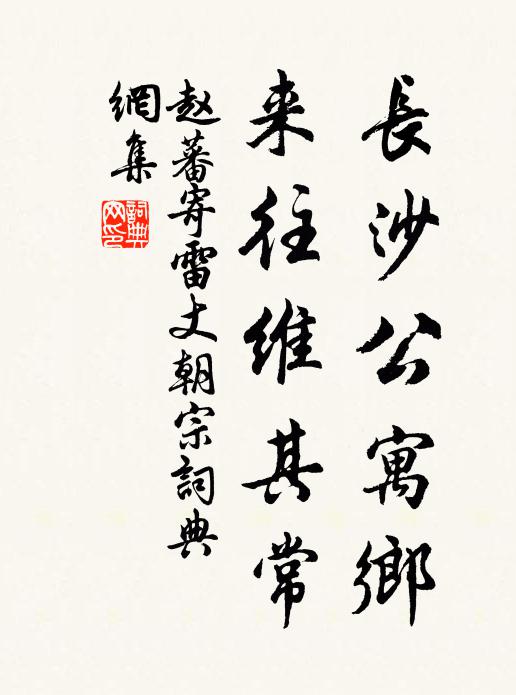 長沙公寓鄉
来往維其常
赵蕃寄雷丈朝宗詞典
網集
詞典
网印